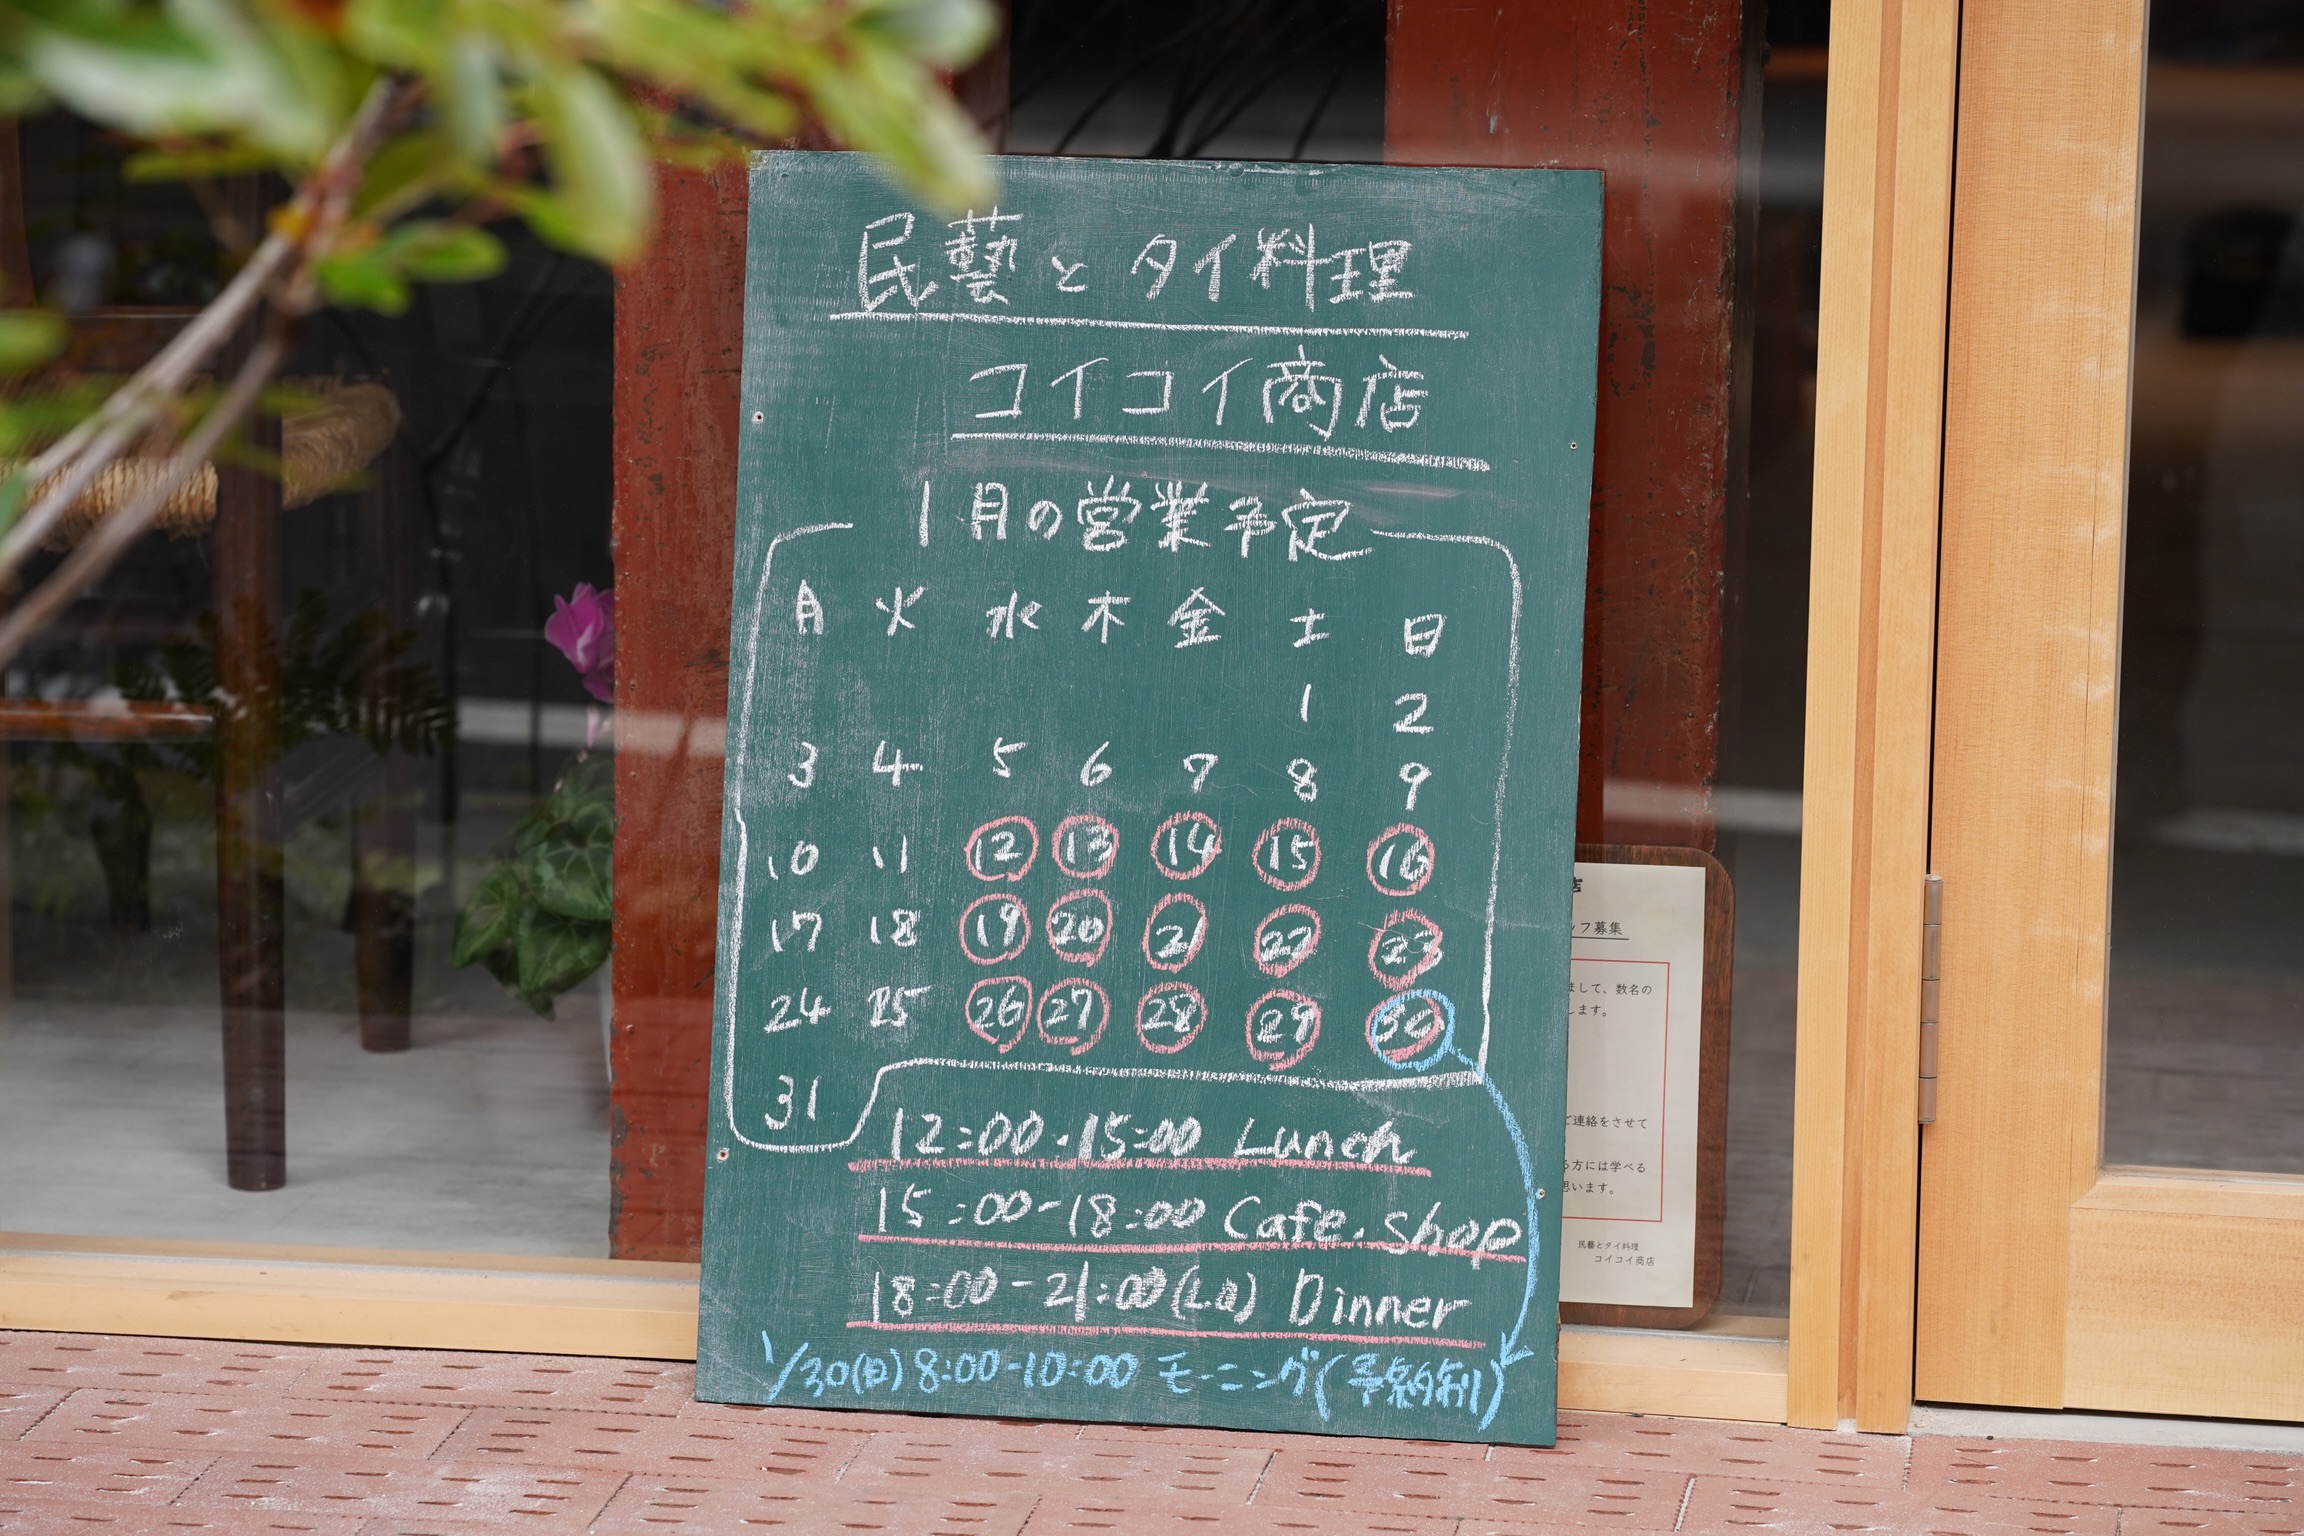 民藝とタイ料理
コイコイ商店
1月の営業予定
月 火 水 木 金 土 日
1 2
3 4 5 6 7 8 9
10 11 12 13 14 15 16
17 18 19 20 21 22 23
24 25 26 27 28 29 30
31
12:00-15:00 Lunch
15:00-18:00 Cafe.Shop
18:00-21:00(L.O) Dinner
1/30(日)8:00-10:00 モーニング(予約制)
店
ッフ募集
まして、数名の
します。
ご連絡をさせて
る方には学べる
思います。
民藝とタイ料理
コイコイ商店